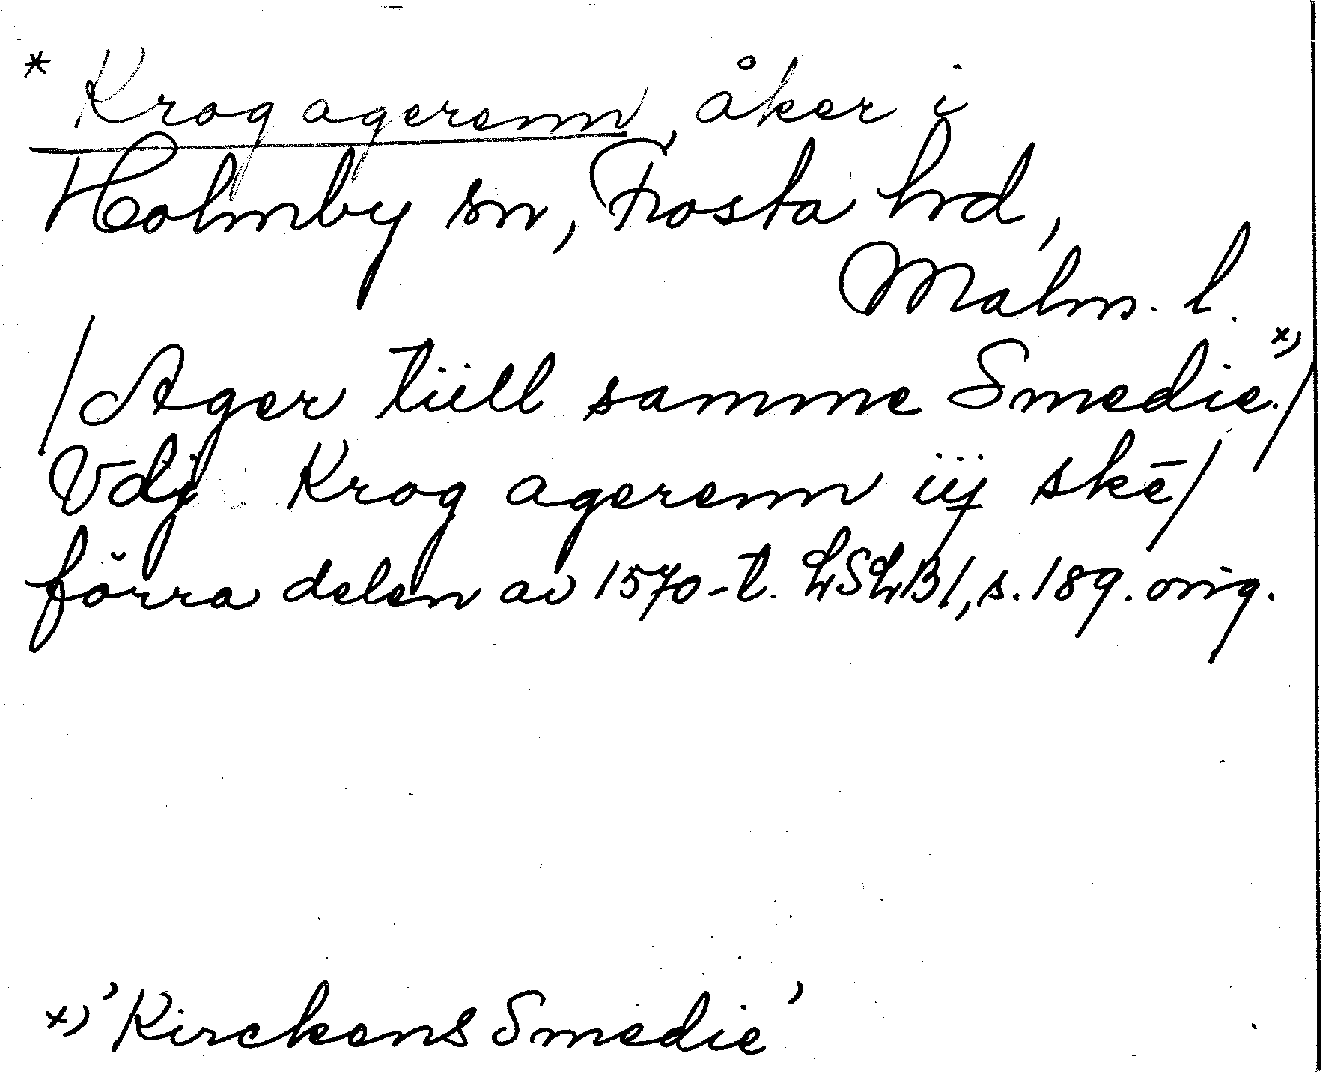 * Krog agerenn, åker i
Holmby sn, Frosta hrd,
Malm. l.
/Ager tiill samme Smedie.*)/
Vdj Krog agerenn iij skē/
förra delen av 1570-t. LSLB1, s. 189. orig.
*) 'Kirckens Smedie'